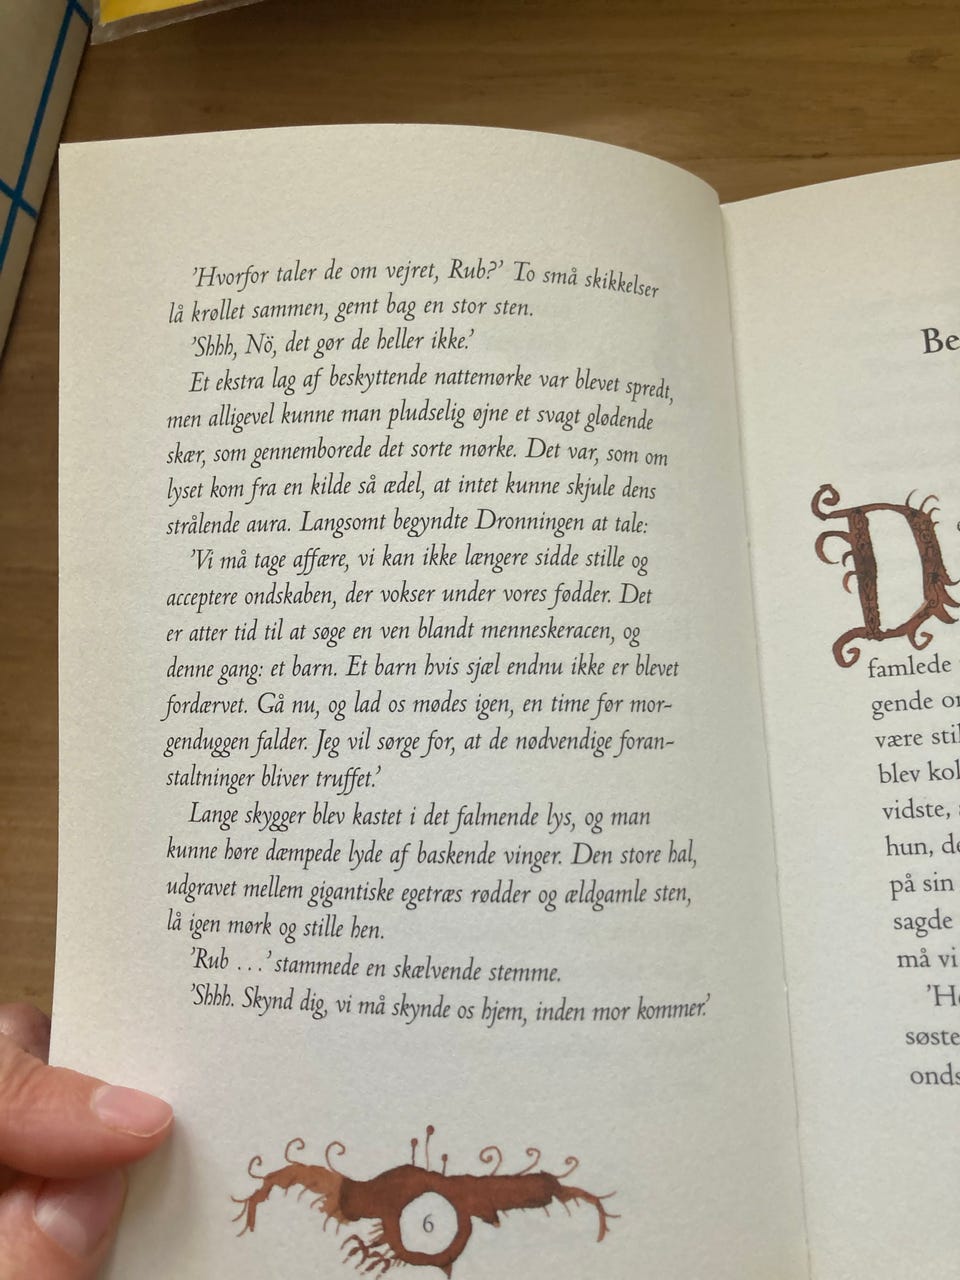 ’Hvorfor taler de om vejret, Rub?’ To små skikkelser
lå krøllet sammen, gemt bag en stor sten.
’Shhh, Nö, det gør de heller ikke.’
Et ekstra lag af beskyttende nattemørke var blevet spredt,
men alligevel kunne man pludselig øjne et svagt glødende
skær, som gennemborede det sorte mørke. Det var, som om
lyset kom fra en kilde så ædel, at intet kunne skjule dens
strålende aura. Langsomt begyndte Dronningen at tale:
’Vi må tage affære, vi kan ikke længere sidde stille og
acceptere ondskaben, der vokser under vores fødder. Det
er atter tid til at søge en ven blandt menneskeracen, og
denne gang: et barn. Et barn hvis sjæl endnu ikke er blevet
fordærvet. Gå nu, og lad os mødes igen, en time før mor-
genduggen falder. Jeg vil sørge for, at de nødvendige foran-
staltninger bliver truffet.’
Lange skygger blev kastet i det falmende lys, og man
kunne høre dæmpede lyde af baskende vinger. Den store hal,
udgravet mellem gigantiske egetræs rødder og ældgamle sten,
lå igen mørk og stille hen.
’Rub . . .’ stammede en skælvende stemme.
’Shhh. Skynd dig, vi må skynde os hjem, inden mor kommer.’
6
Be
D
famlede
gende
være
blev
vidste,
hun,
på sin
sagde
må vi